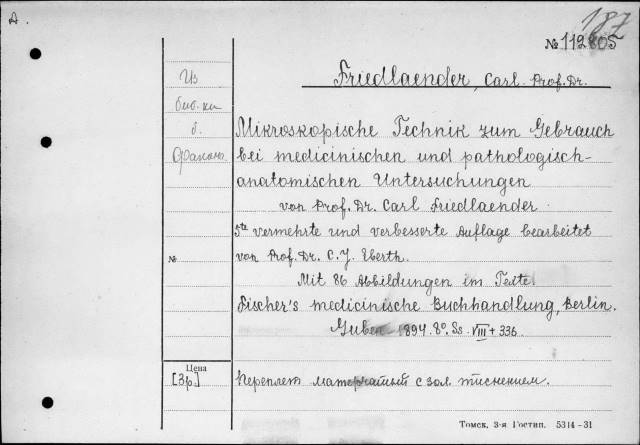 A.
187
№ 112805
Friedlaender, Carl. Prof. Dr.
Из
биб-ки
б.
Mikroskopische Technik zum Gebrauch
bei medicinischen und pathologisch-
anatomischen Untersuchungen
von Prof. Dr. Carl Friedlaender
5te vermehrte und verbesserte Auflage bearbeitet
№
von Prof. Dr. C. J. Eberth.
Mit 86 Abbildungen im Texte
Fischer's medicinische Buchhandlung, Berlin.
Guben 1894. 8o. Ss. VIII + 336.
Цена
[3р.]
Переплет матерчатый с зол. тиснением.
Томск, 3-я Гостип. 5314-31